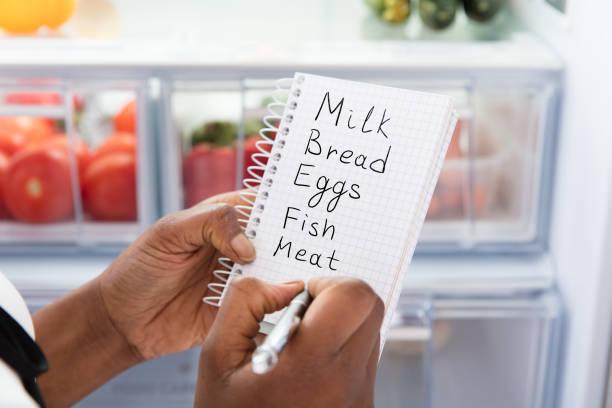 Milk
Bread
Eggs
Fish
Meat